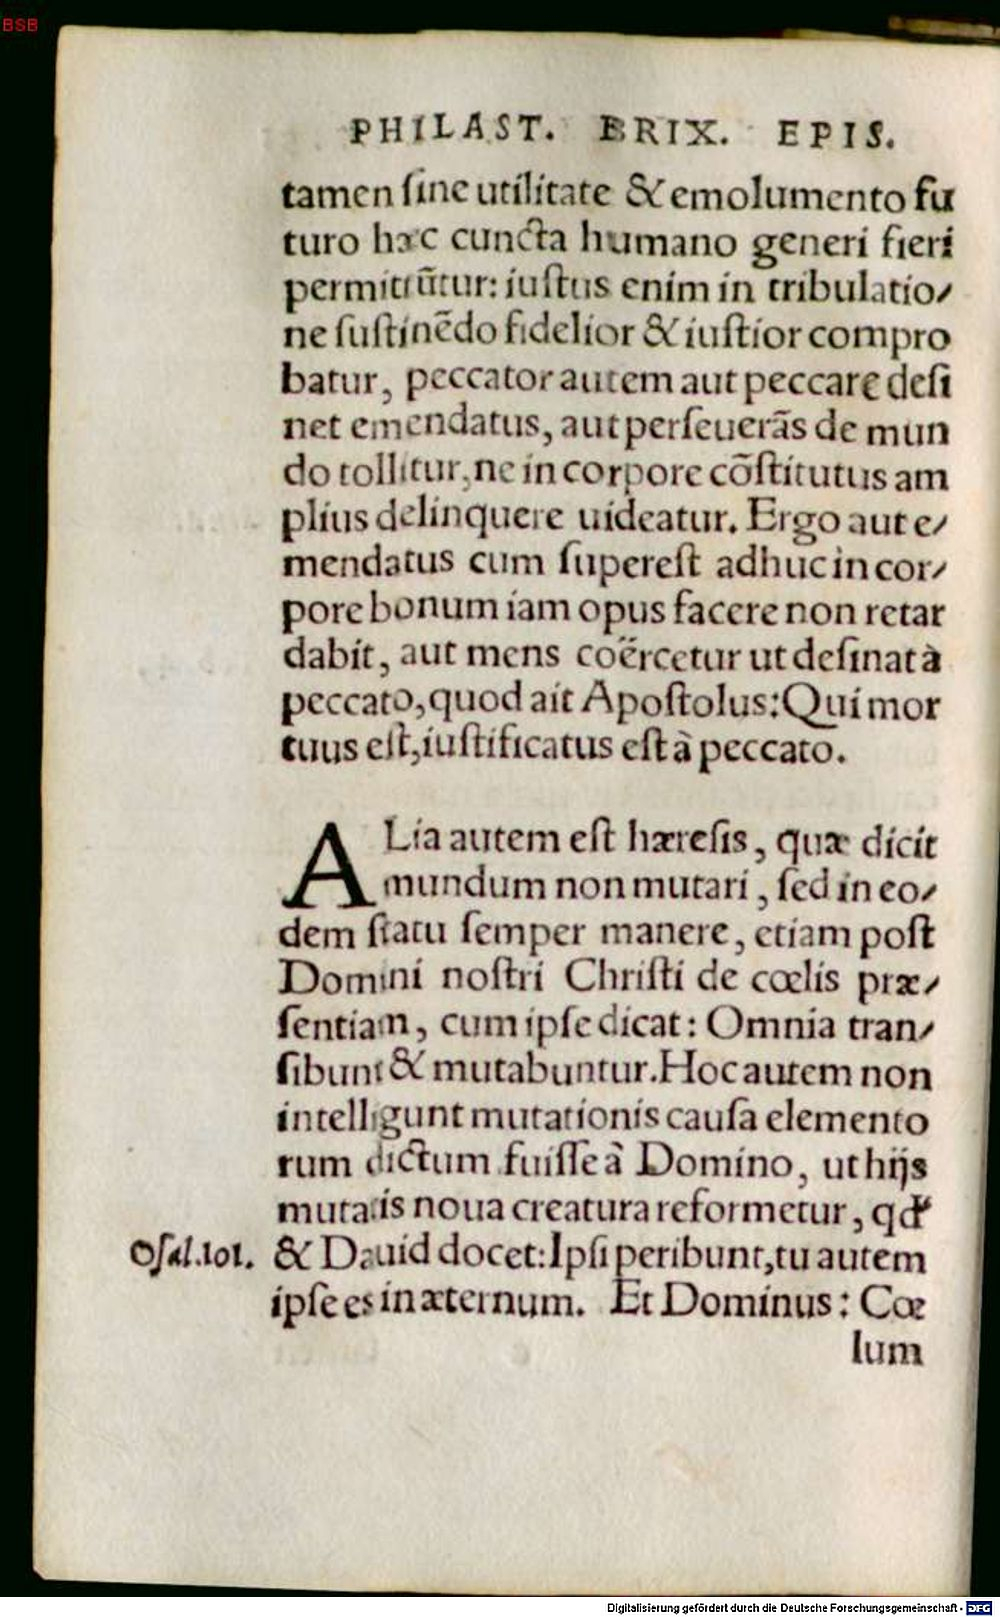 BSB
PHILAST. BRIX. EPIS.
tamen ſine utilitate & emolumento fu
turo hæc cuncta humano generi fieri
permittũtur: iuſtus enim in tribulatio⸗
ne ſuſtinẽdo fidelior & iuſtior compro
batur, peccator autem aut peccare deſi
net emendatus, aut perſeuerãs de mun
do tollitur, ne in corpore cõſtitutus am
plius delinquere uideatur. Ergo aut e⸗
mendatus cum ſupereſt adhuc in cor⸗
pore bonum iam opus facere non retar
dabit, aut mens coërcetur ut deſinat à
peccato, quod ait Apoſtolus: Qui mor
tuus eſt, iuſtificatus eſt à peccato.
ALia autem eſt hæreſis, quæ dicit
mundum non mutari, ſed in eo⸗
dem ſtatu ſemper manere, etiam poſt
Domini noſtri Chriſti de cœlis præ⸗
ſentiam, cum ipſe dicat: Omnia tran⸗
ſibunt & mutabuntur. Hoc autem non
intelligunt mutationis cauſa elemento
rum dictum fuiſſe à Domino, ut hijs
mutatis noua creatura reformetur, qđ
Oſal.101. & Dauid docet: Ipſi peribunt, tu autem
ipſe es in æternum. Et Dominus: Cœ
lum
Digitalisierung gefördert durch die Deutsche Forschungsgemeinschaft - DFG